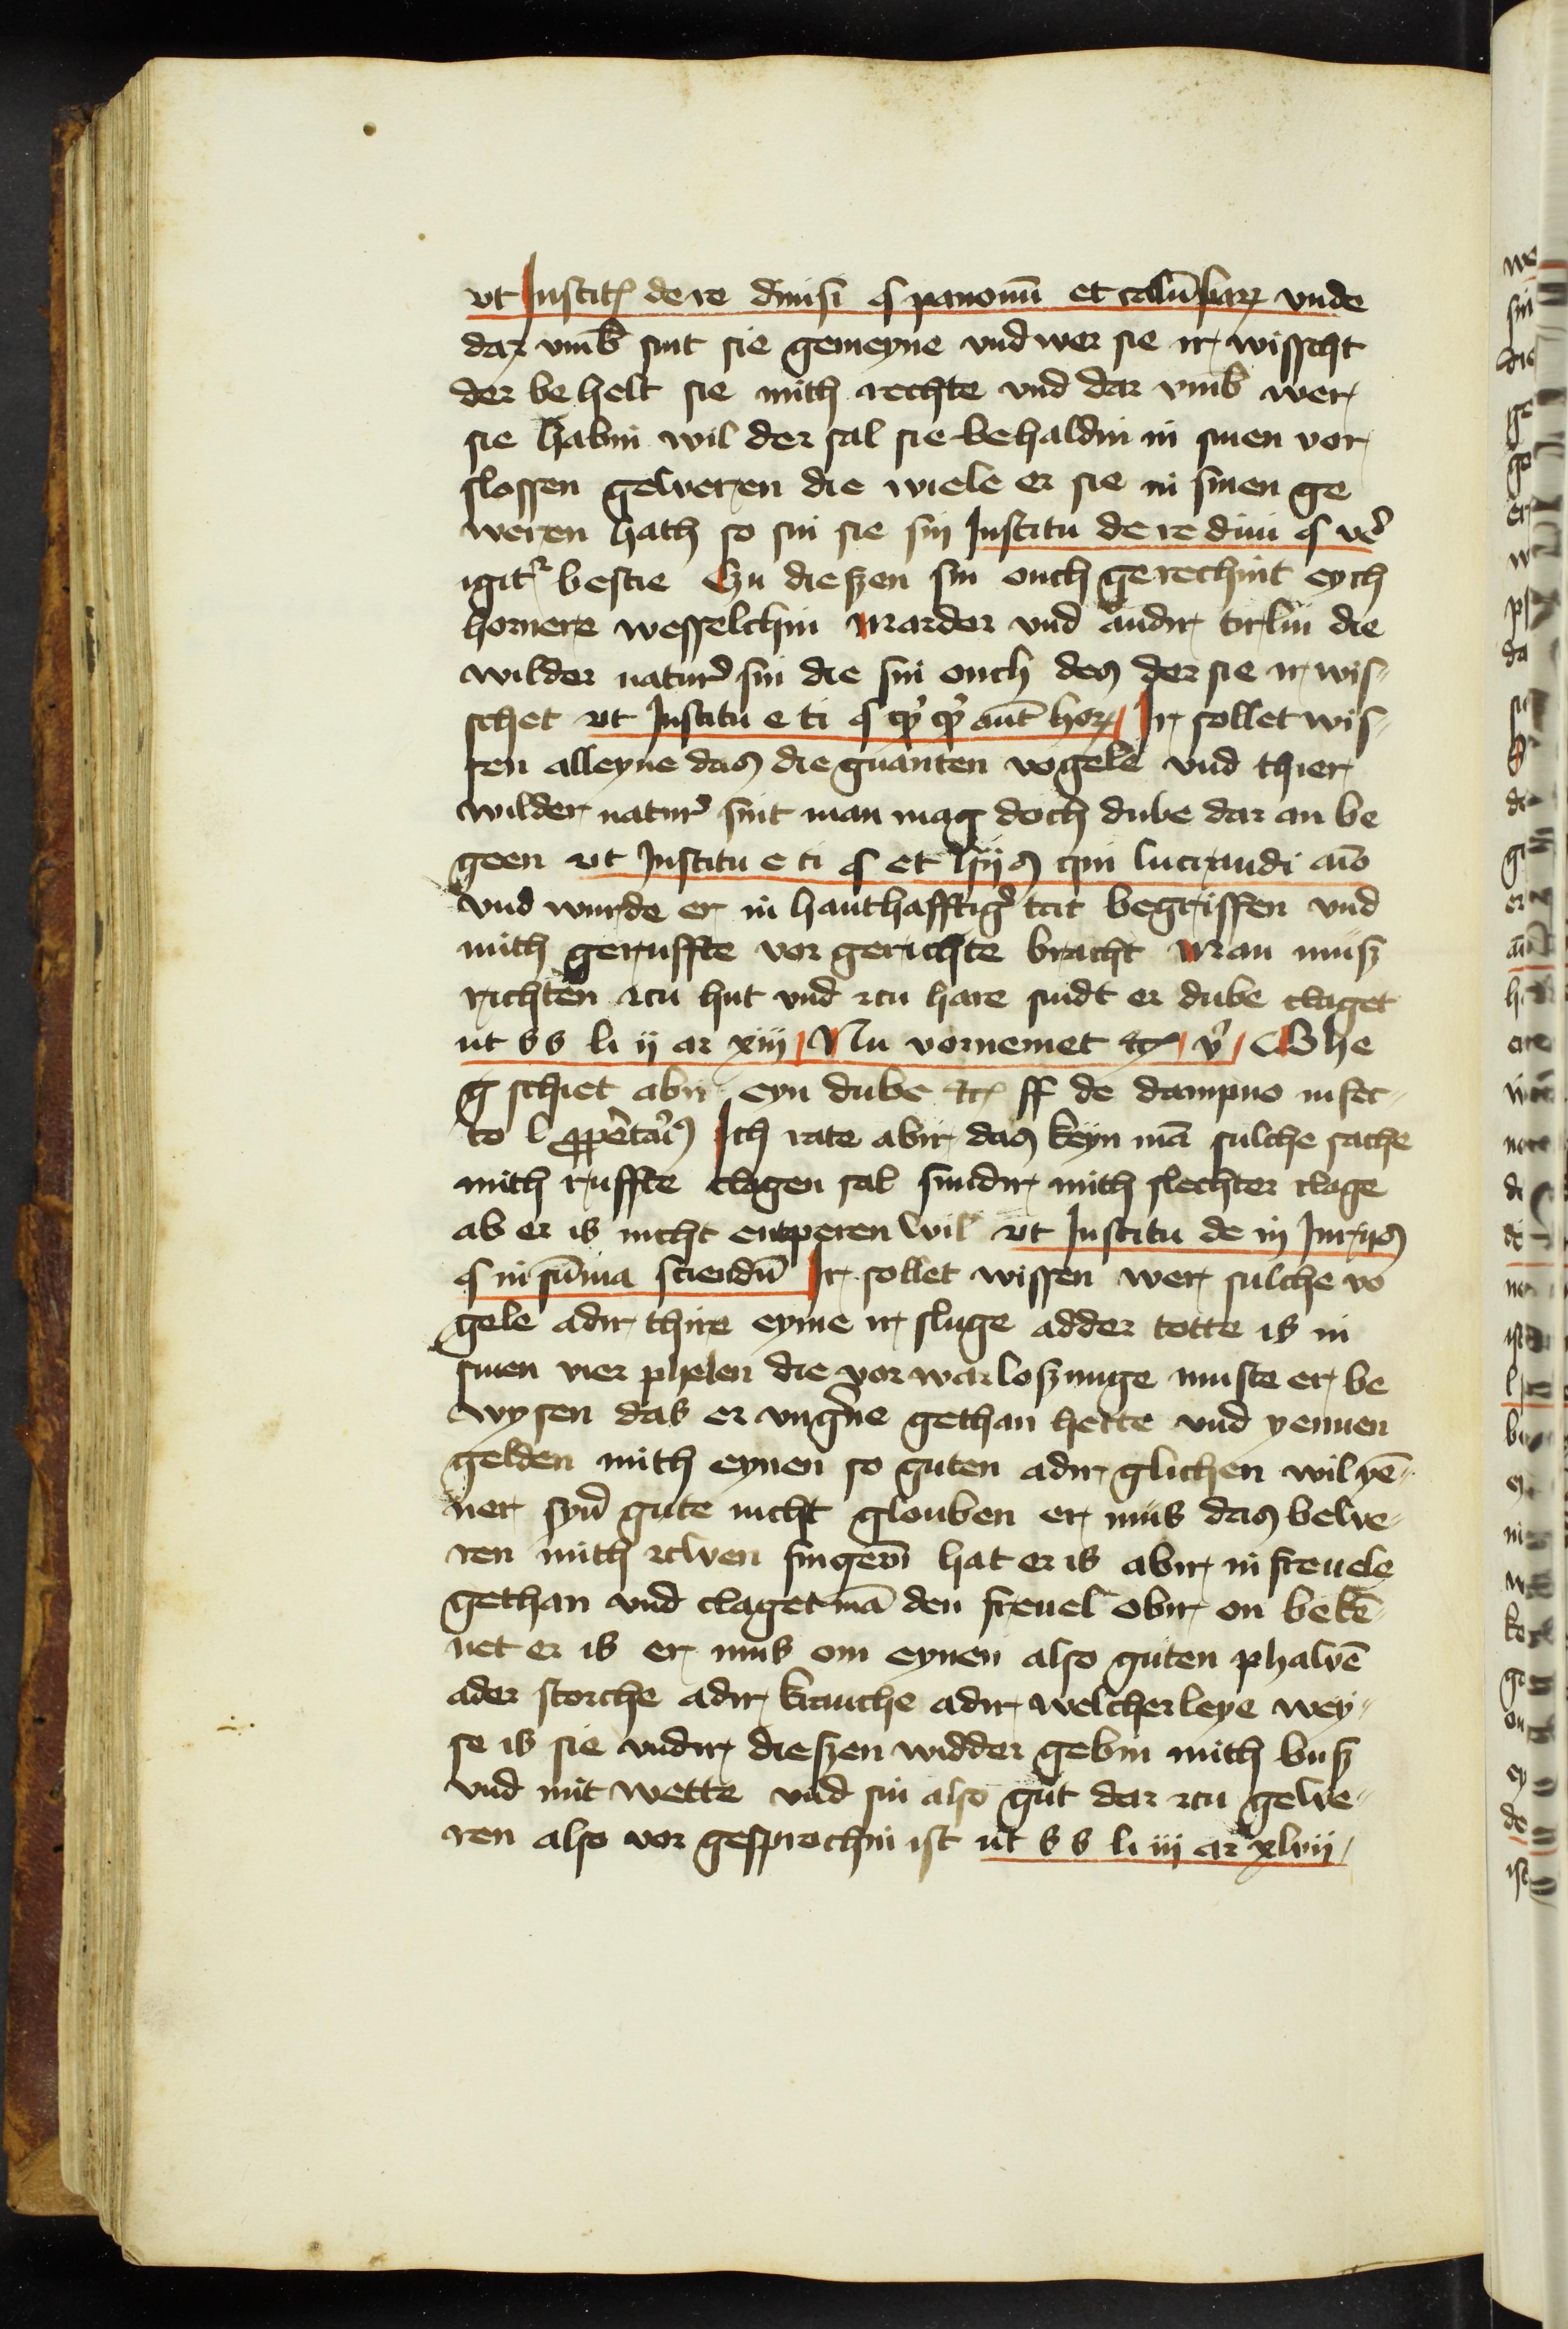 vt Institꝭ de re diuisi § pauonū et colūbarꝝ vnde
dar vmb sint sie gemeyne vnd wer sie ir wisscht
der be helt sie mith rechte vnd dar vmb wer
sie habin wil der sal sie behaldin in sinen vor
slossen geweren die wiele er sie in sinen ge
weren hath so sin sie sin Institu de re diui §
igitʳ bestie Czu dieszen sin ouch gerechint eych
hornere wesselchin Marder vnd andir tirlin die
wilder natur sin die sin ouch des der sie ir wis
schet vt Institu e ti § aut horꝝ Ir sollet wis
sen alleyne das die gnanten vogele vnd thier
wilder natur sint man mag doch dube dar an be
geen vt Institu e ti § et luctandi aīo
vnd wurde er in hanthafftigͬ tat begriffen vnd
mith geruffte vor gerichte bracht Man musz
richten zcu hut vnd zcu hare sindt er dube claget
ut ss li ij ar xiij Nu vornemet etcꝭ Whe
g schiet abir eyn dube etcꝭ ff de dampno infec
to l Ich rate abir das keyn mā sulche sache
mith ruffte clagen sal sundir mith slechter clage
ab er is nicht entperen wil vt Institu de in Iuriis
§ in sūma sciendū Ir sollet wissen wer sulche vo
gele adir thire eyme ir sluge adder totte is in
sinen vier phelen die vorwarloszunge muste er be
wysen das er vngͬne gethan hette vnd yennen
gelden mith eynen so guten adir glichen wil yē
ner gute nicht glouben er mus das bewe
ren mith zcwen fingern hat er is abir in freuele
gethan vnd claget mā den freuel obir on bekē
net er is er mus om eynen also guten phalvē
ader storche adir kranche adir welcherleye wey
se is sie vndir dieszen widder gebin mith busz
vnd mit wette vnd sin also gut dar zcu gewe
ren also vor gesprochin ist ut ss li iij ar xlvii